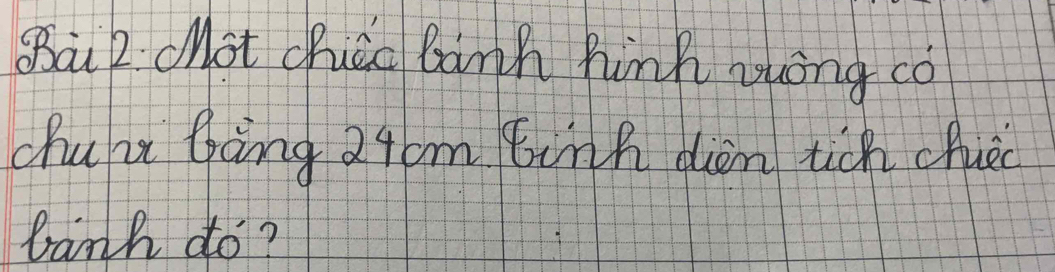 Bài 2. Một chiếc bánh hình vuông có
chu vi bằng 24cm. Tính diện tích chiếc
bánh đó?